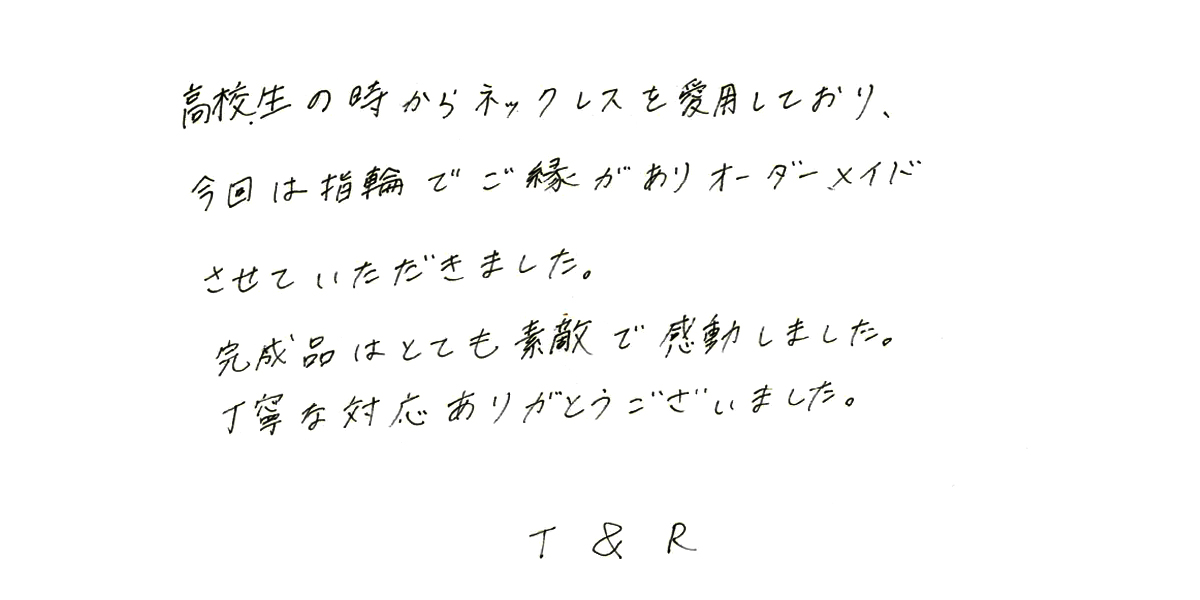 高校生の時からネックレスを愛用しており、
今回は指輪でご縁がありオーダーメイド
させていただきました。
完成品はとても素敵で感動しました。
丁寧な対応ありがとうございました。
T & R